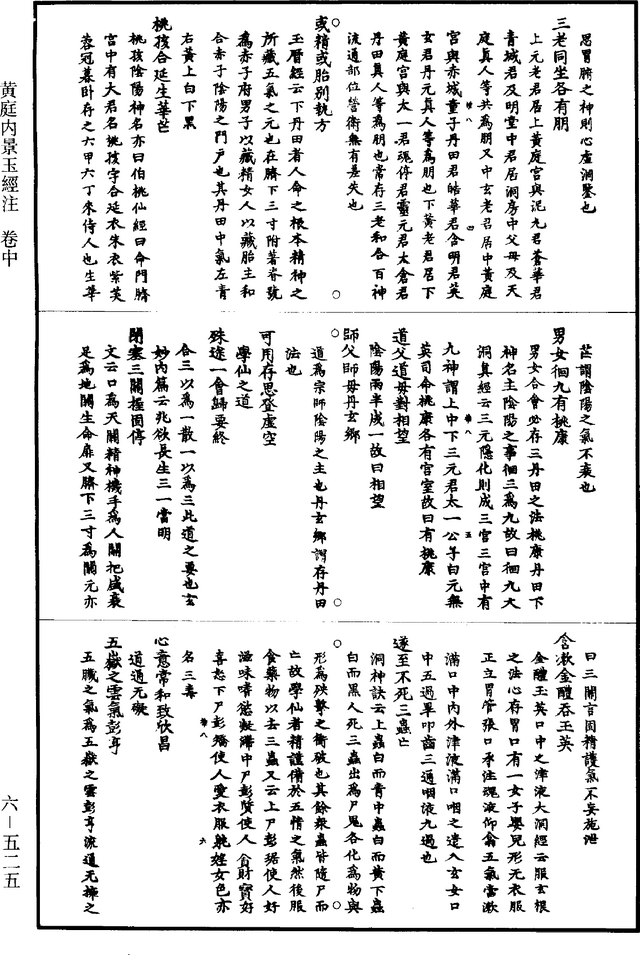 思胃腑之神則心虛洞鑒也
三老同坐各有朋
上元老君居上黃庭宮與泥丸君蒼華君
青城君及明堂中君居洞房中父母及天
庭真人等共為朋又中玄老君居中黃庭
宮與赤城童子丹田君皓華君含明君英
玄君丹元真人等為朋也下黃老君居下
黃庭宮與太一君魂停君靈元君太倉君
丹田真人等為朋也常存三老和合百神
流通部位營衛無有差失也
或精或胎別執方
玉曆經云下丹田者人命之根本精神之
所藏五氣之元也在臍下三寸附著脊號
為赤子府男子以藏精女人以藏胎主和
合赤子陰陽之門戶也其丹田中氣左青
右黃上白下黑
桃孩合延生華芒
桃孩陰陽神名亦曰伯桃仙經曰命門臍
宮中有大君名桃孩字合延衣朱衣紫芙
蓉冠暮卧存之六甲六丁來侍人也生華
芒謂陰陽之氣不衰也
男女徊九有桃康
男女合會必存三丹田之法桃康丹田下
神名主陰陽之事徊三為九故曰徊九大
洞真經云三元隱化則成三宮三宮中有
九神謂上中下三元君太一公子白元無
英司命桃康各有宮室故曰有桃康
道父道母對相望
陰陽兩半成一故曰相望
師父師母丹玄鄉
道為宗師陰陽之主也丹玄鄉謂存丹田
法也
可用存思登虛空
學仙之道
殊途一會歸要終
合三以為一散一以為三此道之要也玄
妙內篇云兆欲長生三一當明
閉塞三關握固停
文云口為天關精神機手為人關把盛衰
足為地關生命扉又臍下三寸為關元亦
曰三關言固精護氣不妄施泄
含漱金醴吞玉英
金醴玉英口中之津液大洞經云服玄根
之法心存胃口有一女子嬰兒形无衣服
正立胃管張口承注魂液仰翕五氣當漱
滿口中內外津液滿口咽之遣入玄女口
中五過畢叩齒三通咽液九過也
遂至不死三蟲亡
洞神訣云上蟲白而青中蟲白而黃下蟲
白而黑人死三蟲出為尸鬼各化為物與
形為殃擊之衝破也其餘衆蟲皆隨尸而
亡故學仙者精謹備於五情之氣然後服
食藥物以去三蟲又云上尸彭琚使人好
滋味嗜慾凝滯中尸彭質使人貪財寶好
喜怒下尸彭矯使人愛衣服躭婬女色亦
名三毒
心意常和致欣昌
道通无礙
五嶽之雲氣彭亨
五臟之氣為五嶽之雲彭亨流通无擁之
黃庭內景玉經注　卷中
六－五二五